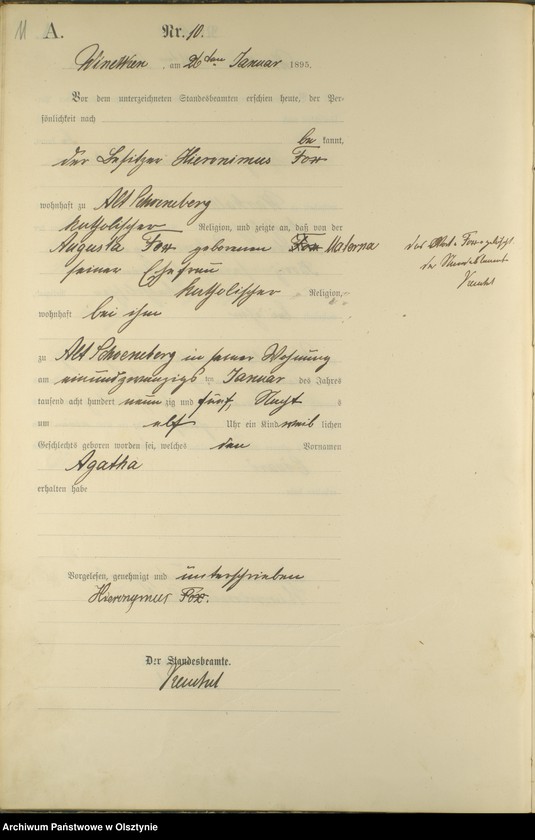 11 A. Nr. 10.
am 26ten Januar 1895.
Vor dem unterzeichneten Standesbeamten erschien heute, der Per-
sönlichkeit nach
be kannt,
der Besitzer Hieronimus Fox
wohnhaft zu Alt Schoeneberg
katholischer Religion, und zeigte an, daß von der
Augusta Fox geborenen Fox Materna
seiner Ehefrau
katholischer Religion,
wohnhaft bei ihm
zu Alt Schoeneberg in seiner Wohnung
am einundzwanzigs ten Januar des Jahres
tausend acht hundert neun zig und fünf, Nachts
um elf Uhr ein Kind weib lichen
Geschlechts geboren worden sei, welches den Vornamen
Agatha
erhalten habe
Vorgelesen, genehmigt und unterschrieben
Hieronymus Fox.
Der Standesbeamte.
das Wort "Fox" gelöscht
Der Standesbeamte
Archiwum Państwowe w Olsztynie